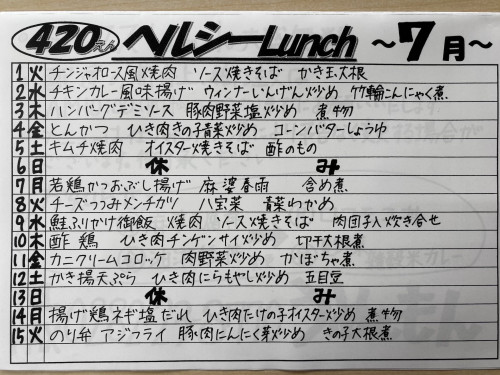 420えん ヘルシーLunch ～7月～
1 火 チンジャオロース風焼肉 ソース焼きそば かき玉大根
2 水 チキンカレー風味揚げ ウィンナーいんげん炒め 竹輪こんにゃく煮
3 木 ハンバーグデミソース 豚肉野菜塩炒め 煮物
4 金 とんかつ ひき肉きの子青菜炒め コーンバターしょうゆ
5 土 キムチ焼肉 オイスター焼きそば 酢のもの
6 日 休み
7 月 若鶏かつおぶし揚げ 麻婆春雨 含め煮
8 火 チーズつつみメンチカツ 八宝菜 青菜わかめ
9 水 鮭ふりかけ御飯 焼肉 ソース焼きそば 肉団子入炊き合せ
10 木 酢鶏 ひき肉チンゲンサイ炒め 切干大根煮
11 金 カニクリームコロッケ 肉野菜炒め かぼちゃ煮
12 土 かき揚天ぷら ひき肉にらもやし炒め 五目豆
13 日 休み
14 月 揚げ鶏ネギ塩だれ ひき肉たけの子オイスター炒め 煮物
15 火 のり弁 アジフライ 豚肉にんにく芽炒め きの子大根煮